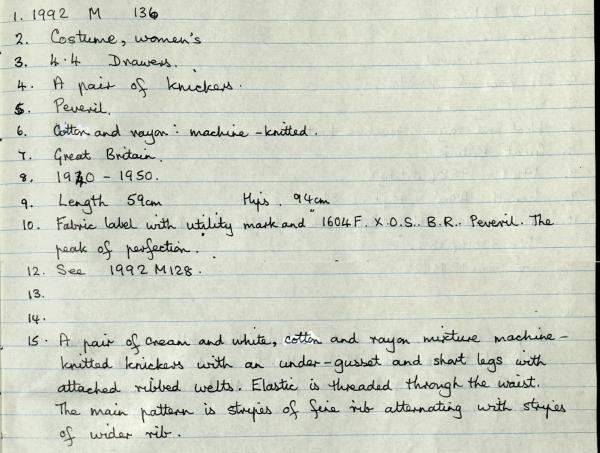 1. 1992 M 136
2. Costume, women's
3. 4.4 Drawers.
4. A pair of knickers.
5. Peveril.
6. Cotton and rayon: machine-knitted.
7. Great Britain.
8. 1940 - 1950.
9. Length 59cm Hips. 94cm
10. Fabric label with utility mark and "1604F. X.O.S.. B.R.. Peveril. The
peak of perfection.
12. See 1992 M128.
13.
14.
15. A pair of cream and white, cotton and rayon mixture machine-
knitted knickers with an under-gusset and short legs with
attached ribbed welts. Elastic is threaded through the waist.
The main pattern is stripes of fine rib alternating with stripes
of wider rib.